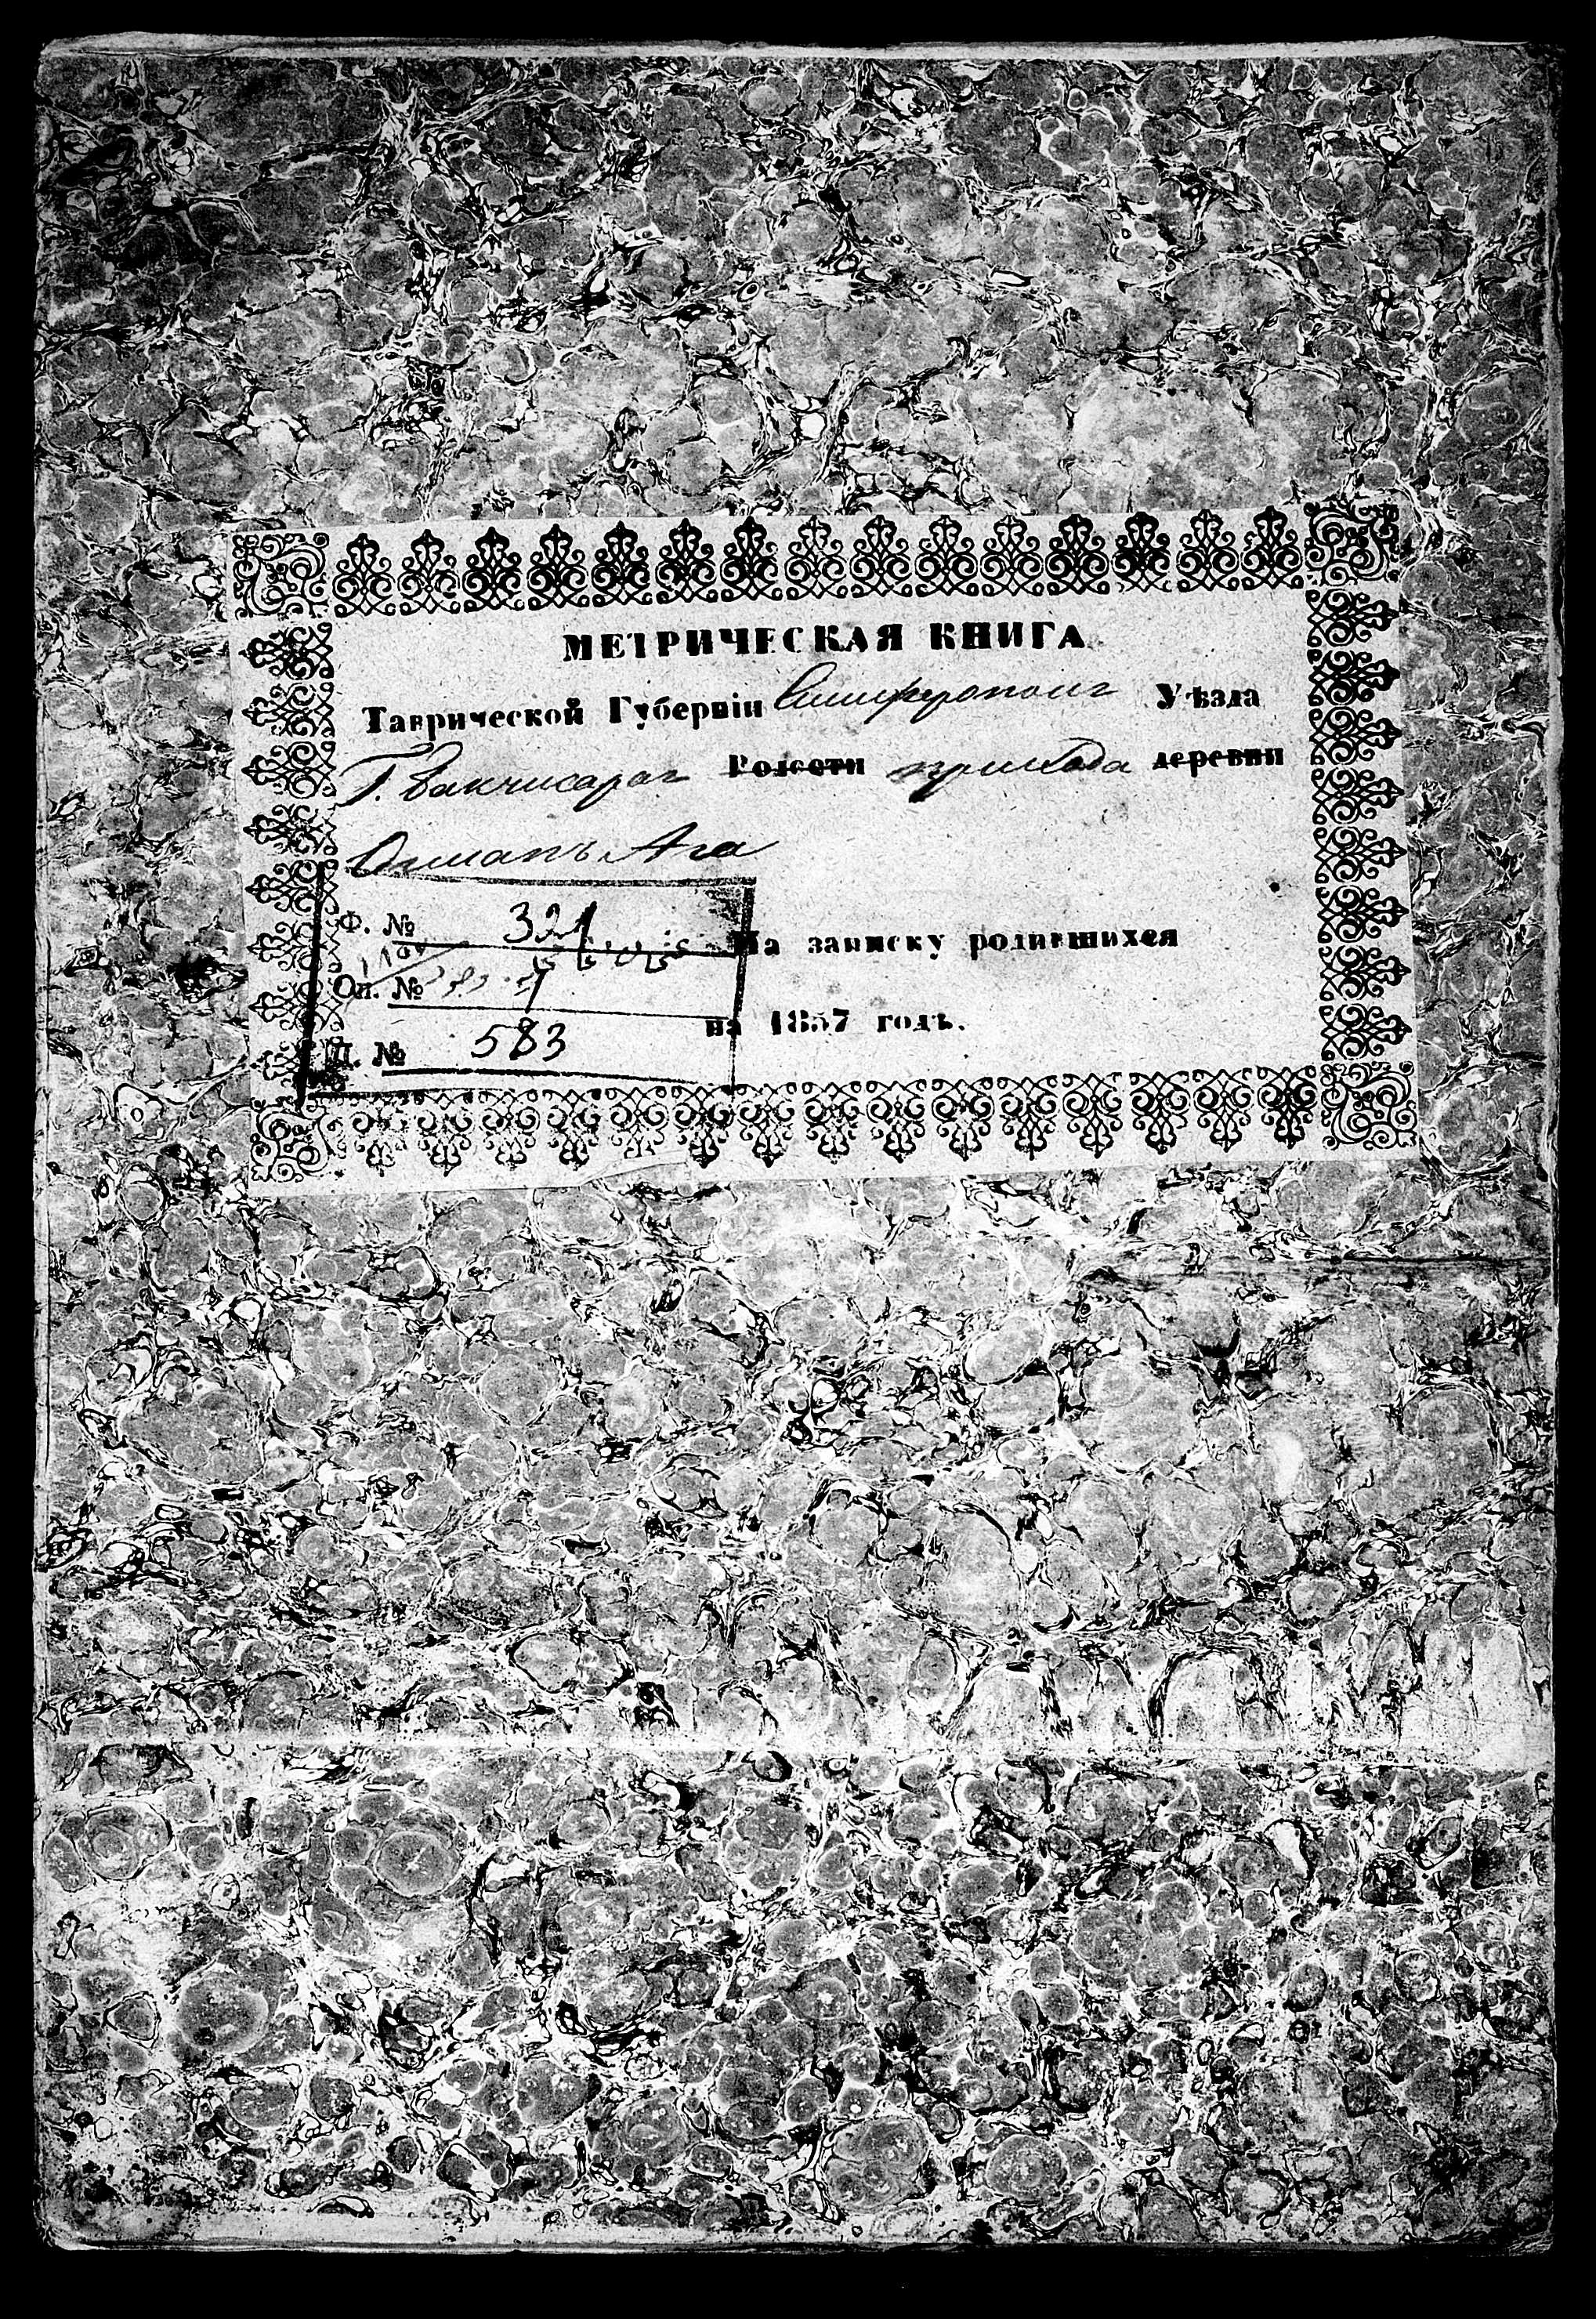 МЕТРИЧЕСКАЯ КНИГА
Таврической Губерніи Симферопол Уѣзда
Г. Бакчисарая Волости прихода деревни
Османъ Ага
Ф. № 321
На записку родившихся
Оп. № 1
на 1857 годъ.
Д. № 583